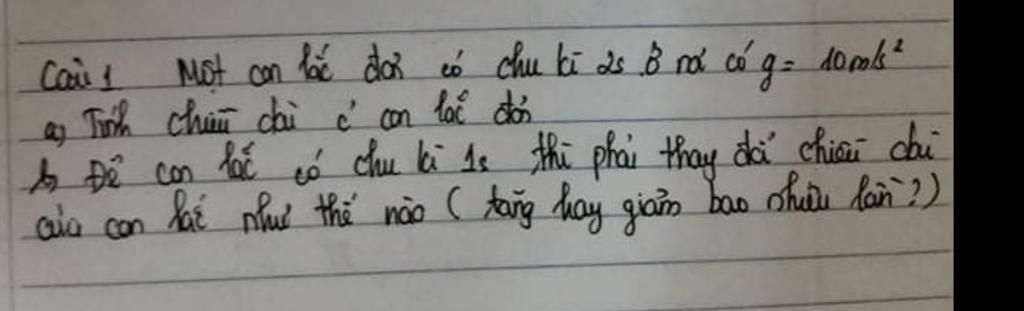 Câu 1 Một con lắc đơn có chu kì 2s. Ở nơi có g = 10m/s²
a, Tính chiều dài c̉ con lắc đơn
b, Để con lắc có chu kì 1s thì phải thay đổi chiều dài
của con lắc như thế nào (tăng hay giảm bao nhiêu lần?)